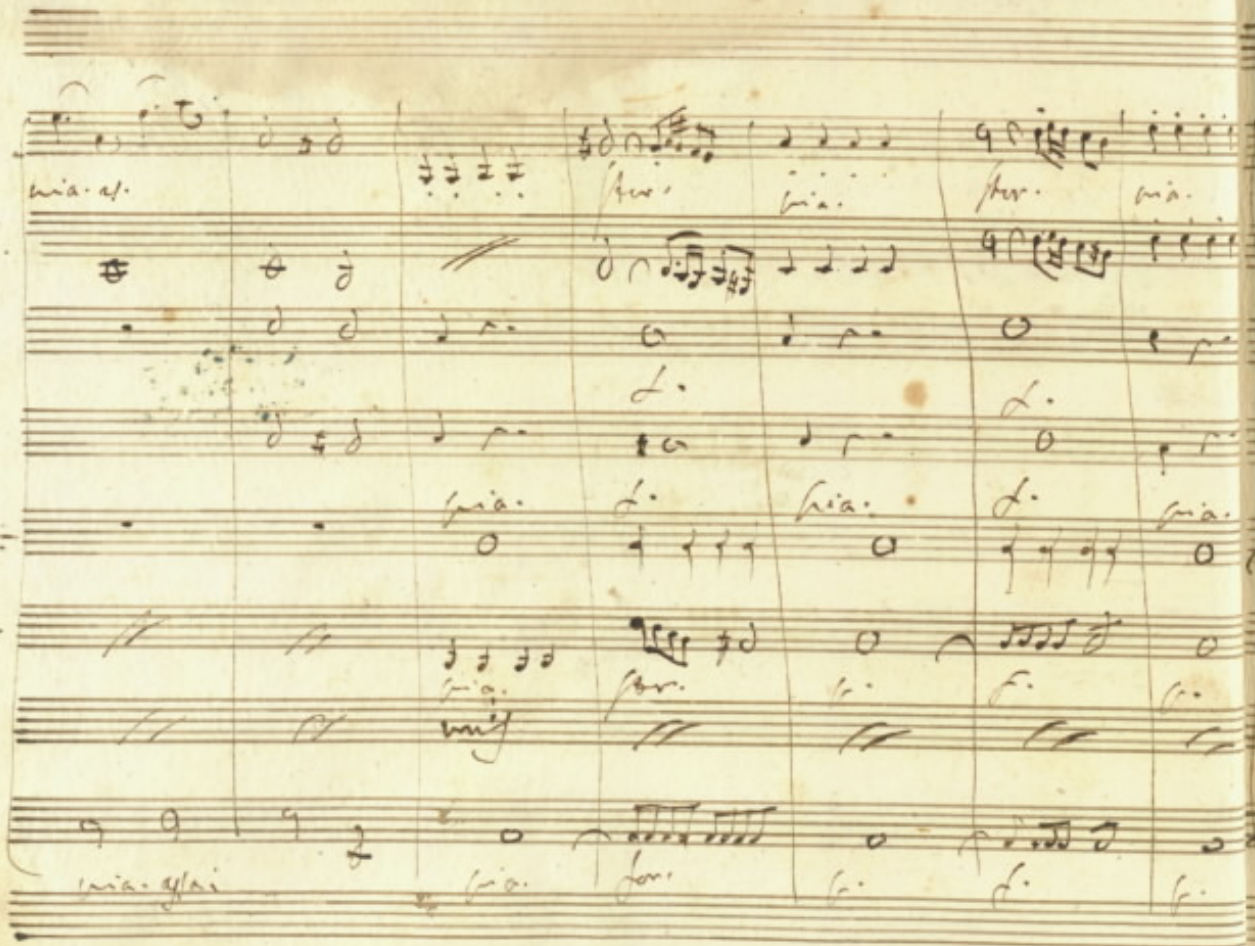 pia. as.
for. pia. for. pia.
f. f.
pia. f. pia. f. pia.
pia. for. p. f. p.
unis
pia. assai pia. for. p. f. p.